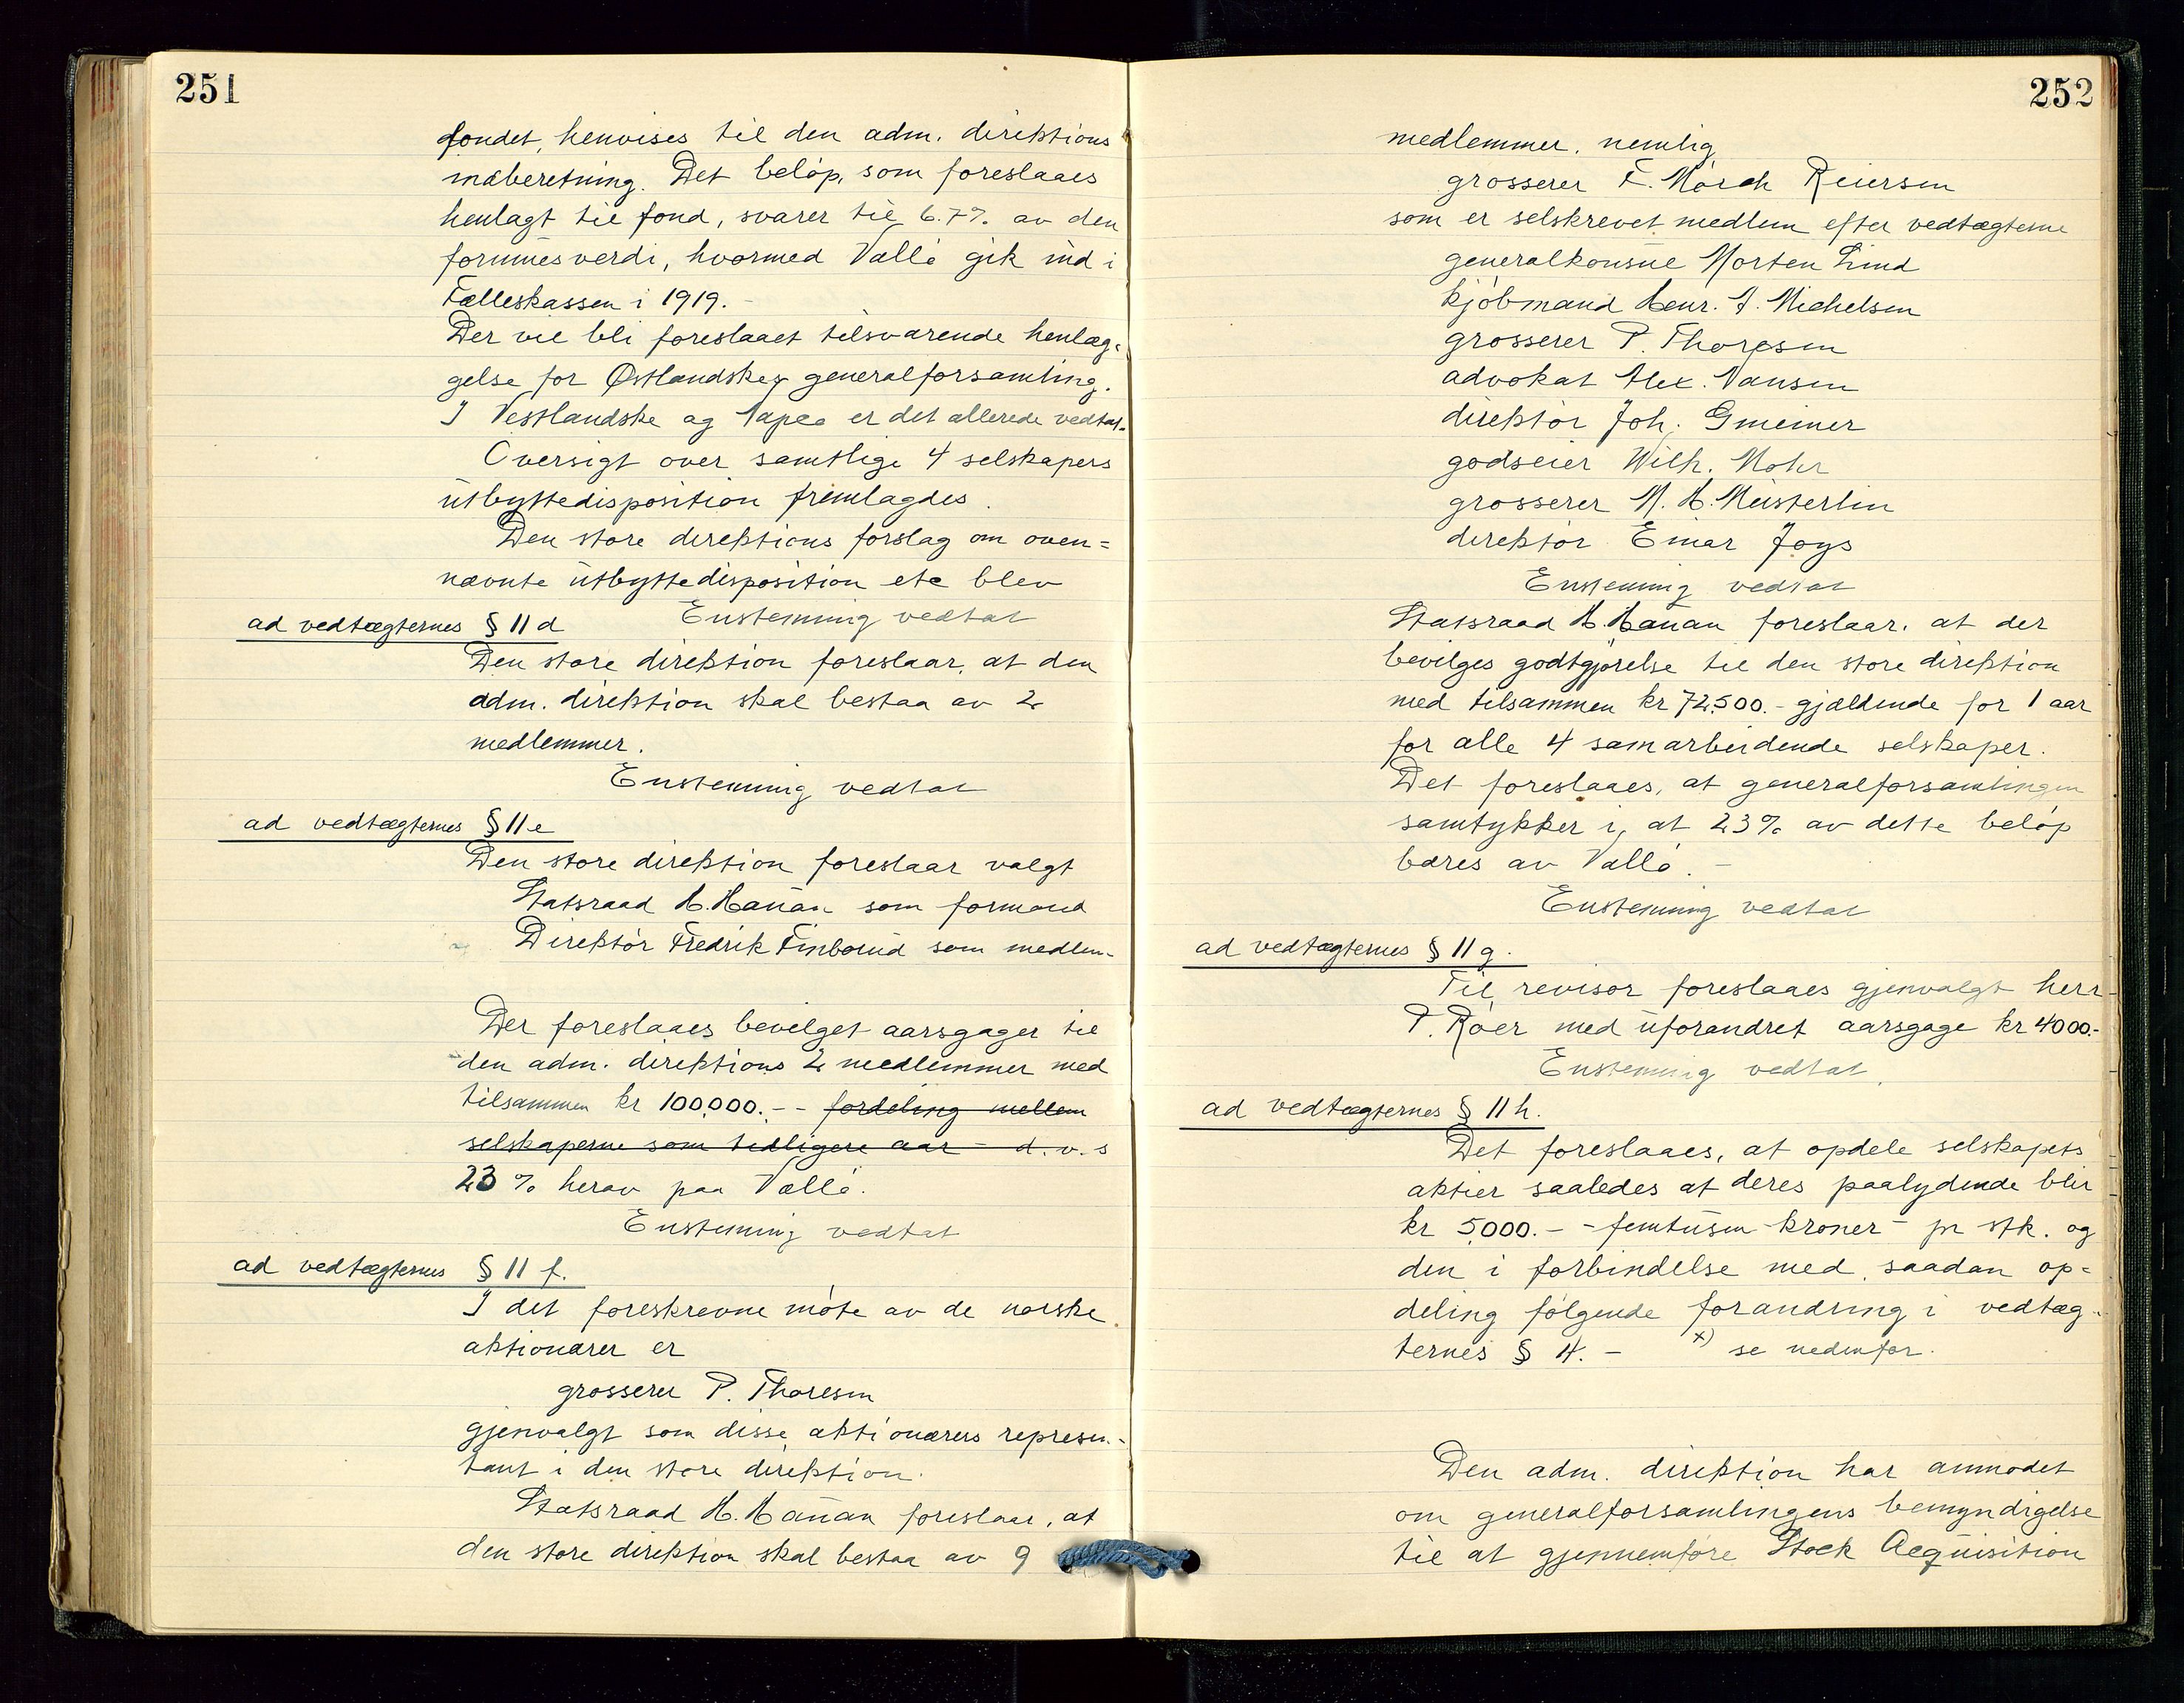 251
fondet, henvises til den adm. direktions
indberetning. Det beløp, som foreslaaes
henlagt til fond, svarer til 6.7% av den
formuesverdi, hvormed Vallö gik ind i
Fælleskassen i 1919. -
Der vil bli foreslaaet tilsvarende henlæg-
gelse for Østlandskes generalforsamling.
I Vestlandske og Vapco er det allerede vedtat.
Oversigt over samtlige 4 selskapers
utbyttedisposition fremlagdes.
Den store direktions forslag om oven=
nævnte utbyttedisposition etc blev
Enstemmig vedtat
ad vedtægternes § 11 d
Den store direktion foreslaar, at den
adm. direktion skal bestaa av 2
medlemmer.
Enstemmig vedtat
ad vedtægternes § 11 e
Den store direktion foreslaar valgt
Statsraad H. Hauan som formand
Direktör Fredrik Finborud som medlem-
Der foreslaaes bevilget aarsgager til
den adm. direktions 2 medlemmer med
tilsammen kr 100.000.- - fordeling mellem
selskaperne som tidligere aar - d.v.s
23% herav paa Vallö.
Enstemmig vedtat
ad vedtægternes § 11 f.
I det foreskrevne möte av de norske
aktionærer er
grosserer P. Thoresen
gjenvalgt som disse aktionærers represen-
tant i den store direktion.
Statsraad H. Hauan foreslaar, at
den store direktion skal bestaa av 9
252
medlemmer, nemlig
grosserer F. Mörch Reiersen
som er selskrevet medlem efter vedtægterne
generalkonsul Morten Lind
kjöbmand Henr. J. Michelsen
grosserer P. Thoresen
advokat Alex. Nansen
direktör Joh. Gmeiner
godseier Wilh. Mohr
grosserer M. H. Meisterlin
direktör Einar Joys
Enstemmig vedtat
Statsraad H. Hauan foreslaar, at der
bevilges godtgjörelse til den store direktion
med tilsammen kr 72.500.- gjældende for 1 aar
for alle 4 samarbeidende selskaper.
Det foreslaaes, at generalforsamlingen
samtykker i, at 23% av dette belöp
bæres av Vallö. -
Enstemmig vedtat
ad vedtægternes § 11 g.
Til revisor foreslaaes gjenvalgt herr
P. Röer med uforandret aarsgage kr 4000.-
Enstemmig vedtat.
ad vedtægternes § 11 h.
Det foreslaaes, at opdele selskapets
aktier saaledes at deres paalydende blir
kr 5.000.- - femtusen kroner - pr stk. og
den i forbindelse med saadan op=
deling fölgende forandring i vedtæg-
ternes § 4. - x) se nedenfor.
Den adm. direktion har anmodet
om generalforsamlingens bemyndigelse
til at gjennemföre Stock Acquisition